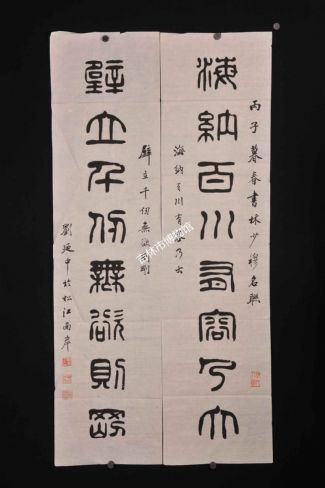 丙子暮春書林少穆名聯
海納百川有容乃大
海納百川有容乃大
壁立千仞無欲則剛
壁立千仞無欲則剛
劉延中於松江南岸
吉林市博物馆